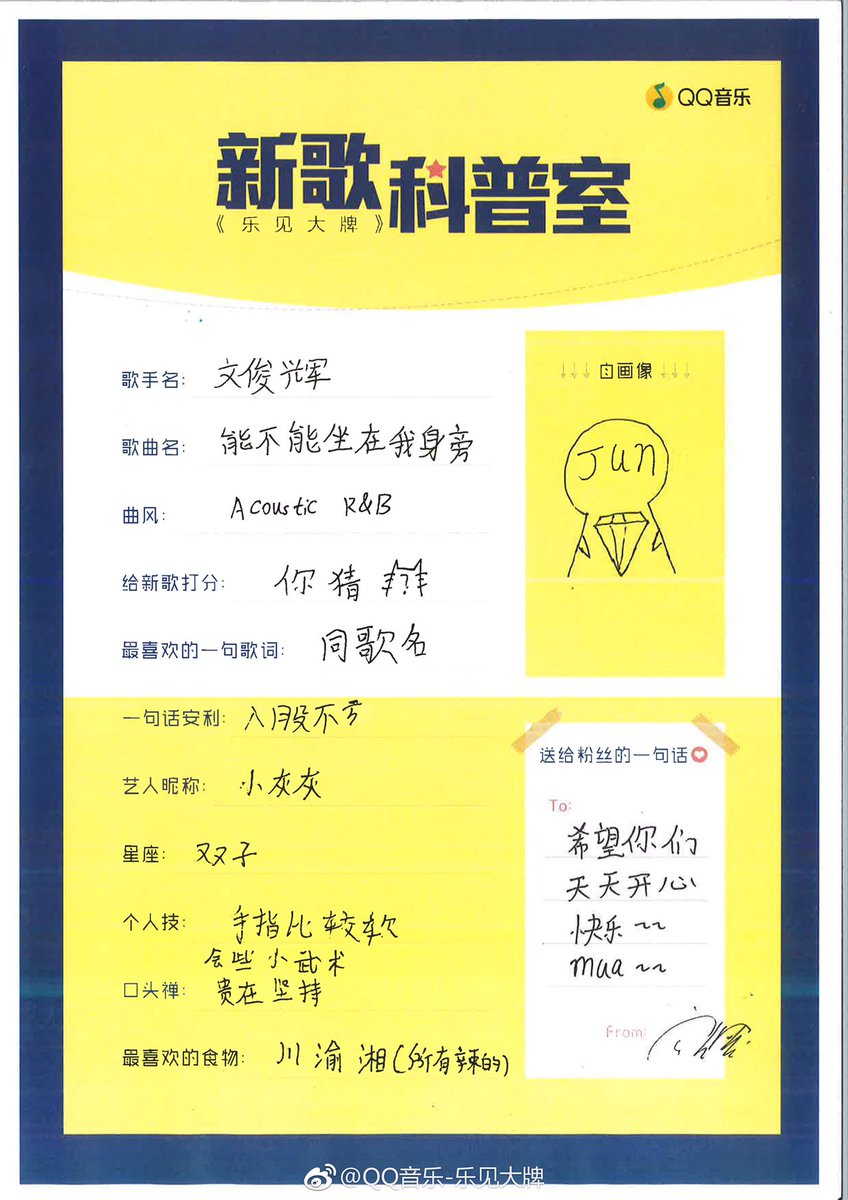 QQ音乐
新歌科普室
《乐见大牌》
歌手名: 文俊辉
歌曲名: 能不能坐在我身旁
曲风: Acoustic R&B
给新歌打分: 你猜
最喜欢的一句歌词: 同歌名
一句话安利: 入股不亏
艺人昵称: 小灰灰
星座: 双子
个人技: 手指比较软
会些小武术
口头禅: 贵在坚持
最喜欢的食物: 川渝湘(所有辣的)
↓↓↓自画像↓↓↓
Jun
送给粉丝的一句话
To:
希望你们
天天开心
快乐~~
mua~~
From:
@QQ音乐-乐见大牌